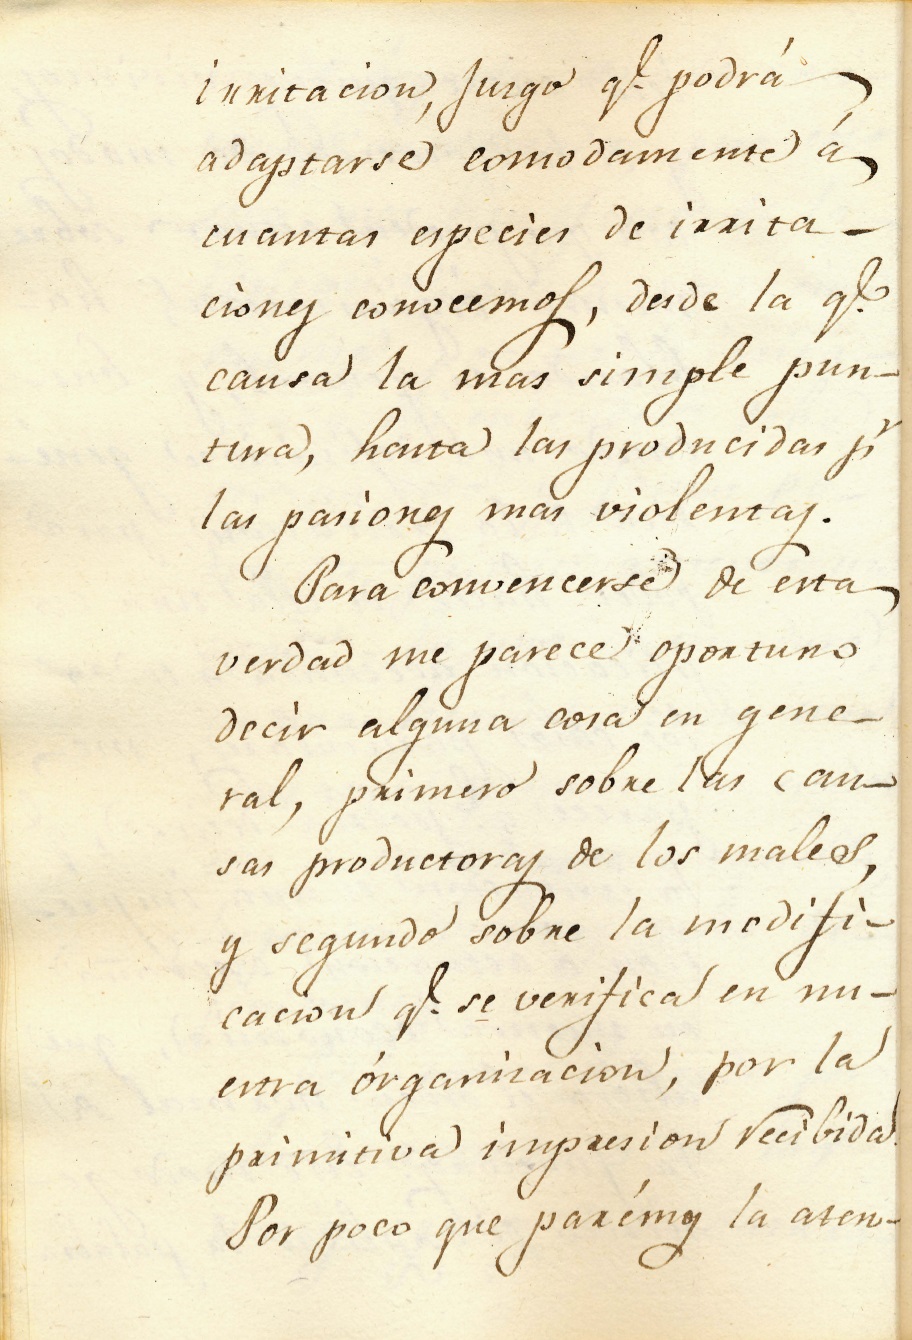 irritacion, Jusgo q.e podrá
adaptarse comodamente á
cuantas especies de irrita-
ciones conocemos, desde la q.e
causa la mas simple pun-
tura, hasta las producidas p.r
las pasiones mas violentas.
Para convencerse de esta
verdad me parece oportuno
decir alguna cosa en gene-
ral, primero sobre las cau-
sas productoras de los males,
y segundo sobre la modifi-
cacion q.e se verifica en nu-
estra órganizacion, por la
primitiva impresion recibida.
Por poco que parémos la aten-